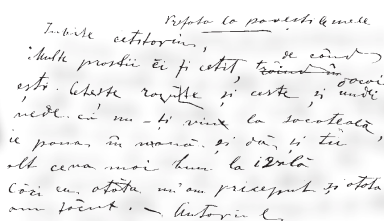 Prefața la poveștile mele
Iubite cetitoriu,
Multe prostii ěi fi cetit, de când
ești. Cetește rogute și ceste și undi
vede că nu-ți vine la socoteală,
ie pana în mână și dă și tu
alt ceva mai bun la ivală
căci eu atâta m'am priceput și atâta
am făcut. — Autoriul